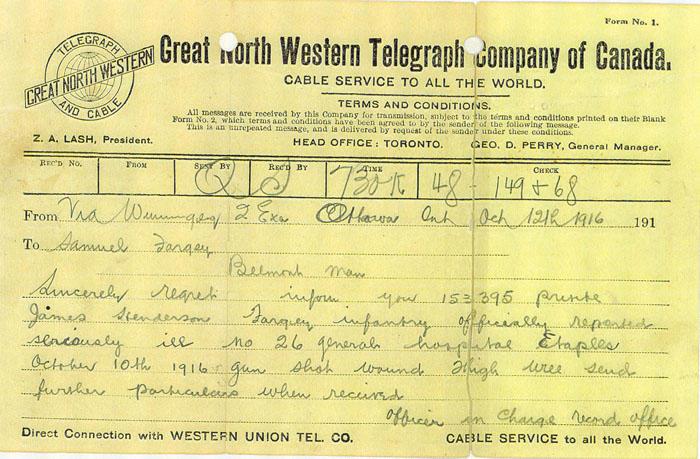 Form No. 1.
TELEGRAPH
GREAT NORTH WESTERN
AND CABLE
Great North Western Telegraph Company of Canada.
CABLE SERVICE TO ALL THE WORLD.
TERMS AND CONDITIONS.
All messages are received by this Company for transmission, subject to the terms and conditions printed on their Blank
Form No. 2, which terms and conditions have been agreed to by the sender of the following message.
This is an unrepeated message, and is delivered by request of the sender under these conditions.
Z. A. LASH, President. HEAD OFFICE: TORONTO. GEO. D. PERRY, General Manager.
REC'D NO. FROM SENT BY REC'D BY TIME CHECK
730 K 48 - 149 + 68
From Via Winnipeg 2 Exa Ottawa Ont Oct 12th 1916 191
To Samuel Fargey
Belmont Man
Sincerely regret inform you 153395 private
James Henderson Fargey infantry officially reported
seriously ill no 26 general hospital Etaples
October 10th 1916 gun shot wound thigh will send
further particulars when received
Officer in Charge record office
Direct Connection with WESTERN UNION TEL. CO. CABLE SERVICE to all the World.